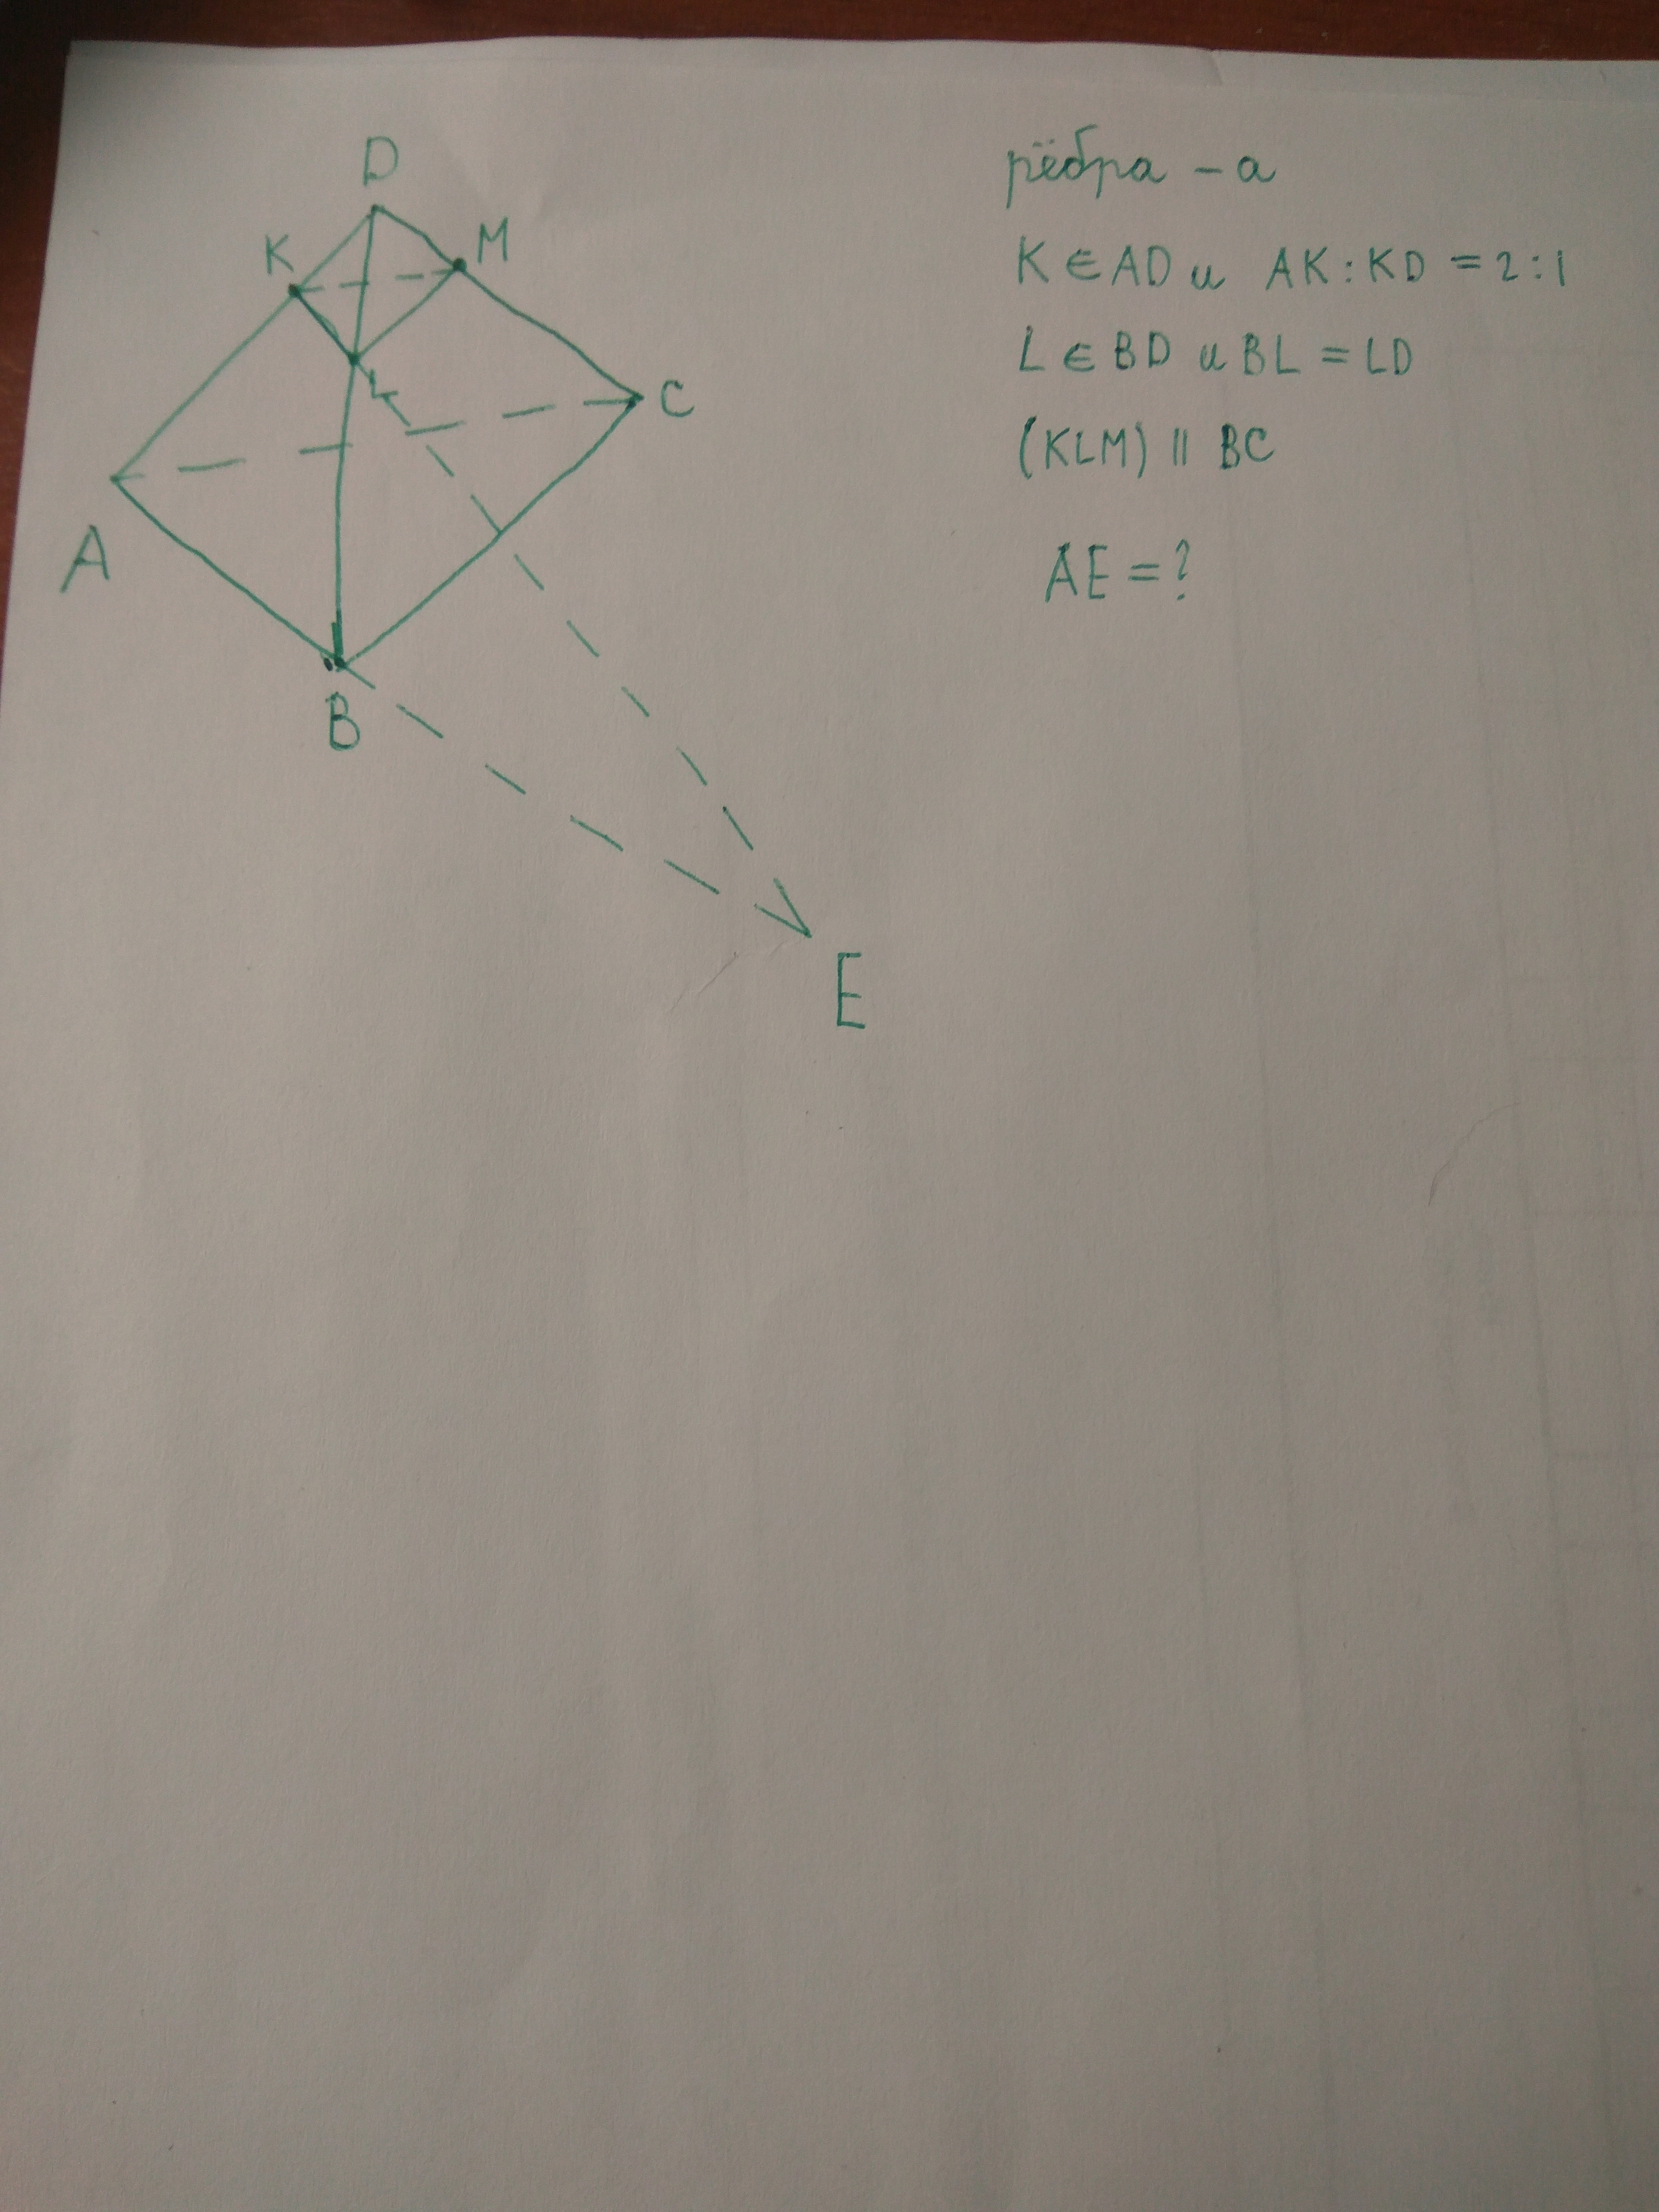 D
K
M
L
C
A
B
E
рёбра - a
K ∈ AD и AK : KD = 2 : 1
L ∈ BD и BL = LD
(KLM) || BC
AE = ?